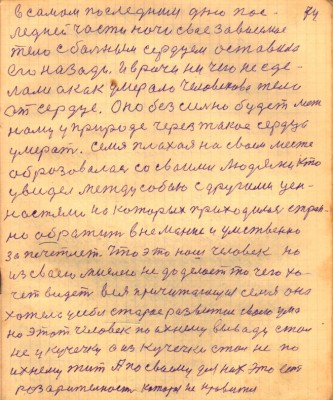 74
в самом последним дню пос-
ледней части ночи свое зависимое
тело с больным сердцем оставило
его назади. И врачи ни чего не сде-
лали а как умерало человеково тело
от сердце. Оно без сильно будет
ному у природе через такое сердце
умерат. Семя плахая на своем месте
образовалася со своими людями кто
увидел между собою с другими цен-
ностями на которых приходилося
но обратит внемание и умственно
Что это наш человек но
из своей мыслею не доделает то чего хо-
чет видет вся причитающия семя она
хотела у себя старое развитие своего ума
но этот человек по ихнему выводу стал
не у кучечки а из кучечки стал не по
ихнему жит А по своему для них это
которая не нравится